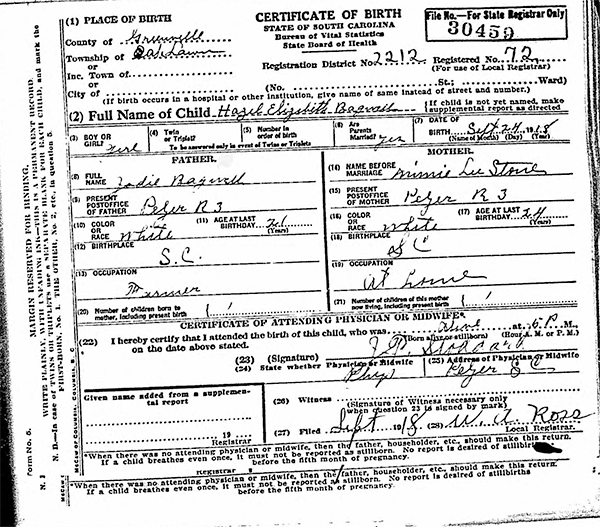 (1) PLACE OF BIRTH
County of Greenville
Township of Oaklawn
or
Inc. Town of
or
City of
CERTIFICATE OF BIRTH
STATE OF SOUTH CAROLINA
Bureau of Vital Statistics
State Board of Health
File No.—For State Registrar Only
30459
Registration District No. 2212 Registered No. 72
(For use of Local Registrar)
(No. St.; Ward)
(If birth occurs in a hospital or other institution, give name of same instead of street and number.)
(2) Full Name of Child Hazel Elizabeth Bagwell
If child is not yet named, make supplemental report as directed
(3) BOY OR GIRL? girl
(4) Twin or Triplet?
(5) Number in order of birth
To be answered only in event of Twins or Triplets
(6) Are Parents Married? yes
(7) DATE OF BIRTH Sept 24 1918
(Name of Month) (Day) (Year)
FATHER.
(8) FULL NAME Bagwell
(9) PRESENT POSTOFFICE OF FATHER Pelzer R3
(10) COLOR OR RACE White
(11) AGE AT LAST BIRTHDAY 21
(Years)
(12) BIRTHPLACE
S.C.
(13) OCCUPATION
Farmer
(20) Number of children born to mother, including present birth 1
MOTHER.
(14) NAME BEFORE MARRIAGE Minnie Lee Stone
(15) PRESENT POSTOFFICE OF MOTHER Pelzer R3
(16) COLOR OR RACE White
(17) AGE AT LAST BIRTHDAY 24
(Years)
(18) BIRTHPLACE
S C
(19) OCCUPATION
at home
(21) Number of children of this mother now living, including present birth 1
CERTIFICATE OF ATTENDING PHYSICIAN OR MIDWIFE*
(22) I hereby certify that I attended the birth of this child, who was alive at 6 P M.,
on the date above stated. (Born alive or stillborn) (Hour A. M. or P. M.)
(23) (Signature) Stoddard
(24) State whether Physician or Midwife (25) Address of Physician or Midwife
Phys Pelzer S C
Given name added from a supplemental report
19
Registrar
(26) Witness
(Signature of Witness necessary only when question 23 is signed by mark)
(27) Filed Sept 1918 (28) W. A. Ross
Local Registrar.
*When there was no attending physician or midwife, then the father, householder, etc., should make this return.
If a child breathes even once, it must not be reported as stillborn. No report is desired of stillbirths
before the fifth month of pregnancy.
Registrar
*When there was no attending physician or midwife, then the father, householder, etc., should make this return.
If a child breathes even once, it must not be reported as stillborn. No report is desired of stillbirths
before the fifth month of pregnancy.
Form No. 5.
MARGIN RESERVED FOR BINDING.
WRITE PLAINLY, WITH UNFADING INK—THIS IS A PERMANENT RECORD.
N. B.—In case of TWINS OR TRIPLETS use a SEPARATE BLANK FOR EACH CHILD, and mark the
FIRST-BORN, No. 1. THE OTHER, No. 2, etc., in question 5.